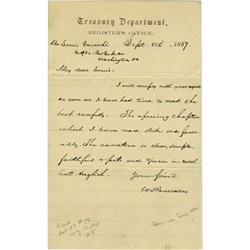 Treasury Department,
REGISTER'S OFFICE,
Sept 8th, 1887
Mr Louis
Washington DC
My dear Louis:
I will comply with your request
as soon as I have had time to read the
book carefully. The opening chapters
which I have read strike me favora-
bly. The narrative is clear, simple,
faithful to facts and given in excel-
lent english.
Your friend